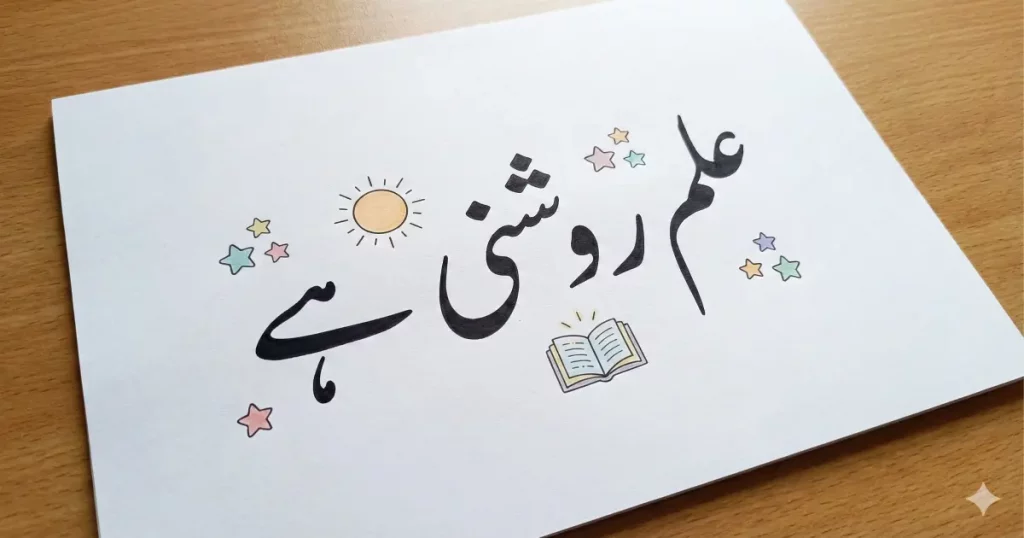 علم روشنی ہے